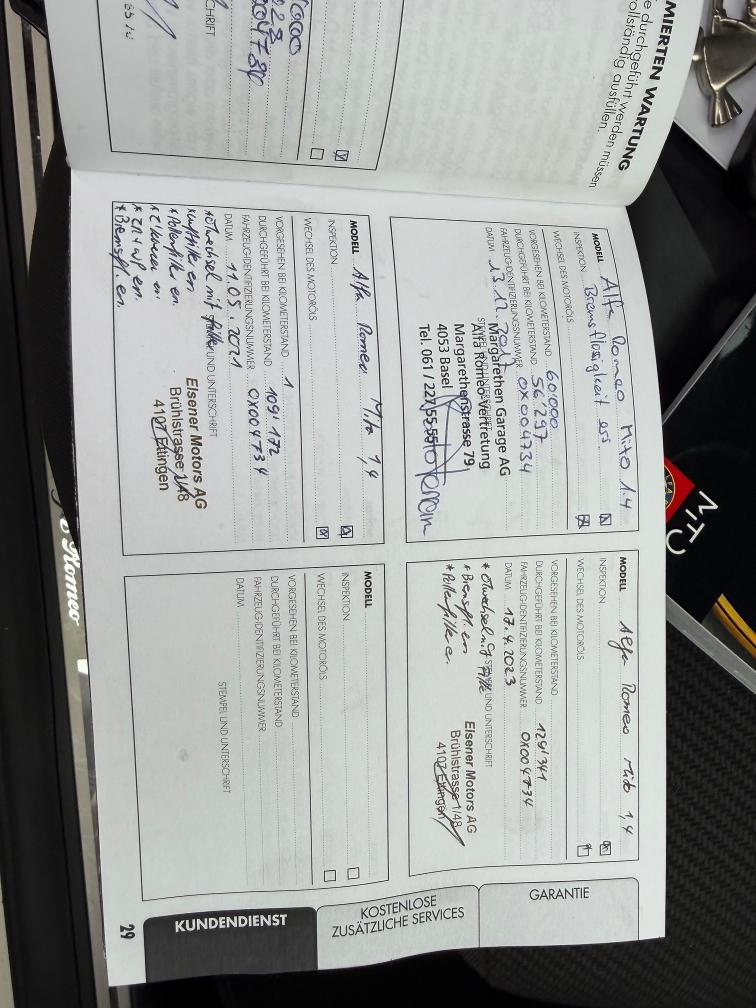 MIERTEN WARTUNG
e durchgeführt werden müssen
ollständig ausfüllen.
MODELL Alfa Romeo Mito 1.4
INSPEKTION Bremsflüssigkeit ers
WECHSEL DES MOTORÖLS
VORGESEHEN BEI KILOMETERSTAND 60'000
DURCHGEFÜHRT BEI KILOMETERSTAND 56'297
FAHRZEUG-IDENTIFIZIERUNGSNUMMER 0X004734
DATUM 13.12.
STEMPEL UND UNTERSCHRIFT
Margarethen Garage AG
Alfa Romeo Vertretung
Margarethenstrasse 79
4053 Basel
Tel. 061 / 227 55 55
MODELL Alfa Romeo Mito 1,4
INSPEKTION
WECHSEL DES MOTORÖLS
VORGESEHEN BEI KILOMETERSTAND 1
DURCHGEFÜHRT BEI KILOMETERSTAND 109'172
FAHRZEUG-IDENTIFIZIERUNGSNUMMER 0X004734
DATUM 11.05.2021
STEMPEL UND UNTERSCHRIFT
* Ölwechsel mit Filter
* Luftfilter en.
* Pollenfilter en.
* Zündkerzen en.
* ZR + WP en.
* Bremsfl. en.
Elsener Motors AG
Brühlstrasse 1/48
4107 Ettingen
MODELL Alfa Romeo Mito 1,4
INSPEKTION
WECHSEL DES MOTORÖLS
VORGESEHEN BEI KILOMETERSTAND
DURCHGEFÜHRT BEI KILOMETERSTAND 129'341
FAHRZEUG-IDENTIFIZIERUNGSNUMMER 0X004734
DATUM 17.4.2023
STEMPEL UND UNTERSCHRIFT
* Ölwechsel mit Filter
* Bremsfl. en
* Pollenfilter e.
Elsener Motors AG
Brühlstrasse 1/48
4107 Ettingen
MODELL
INSPEKTION
WECHSEL DES MOTORÖLS
VORGESEHEN BEI KILOMETERSTAND
DURCHGEFÜHRT BEI KILOMETERSTAND
FAHRZEUG-IDENTIFIZIERUNGSNUMMER
DATUM
STEMPEL UND UNTERSCHRIFT
GARANTIE
KOSTENLOSE
ZUSÄTZLICHE SERVICES
KUNDENDIENST
29
Romeo